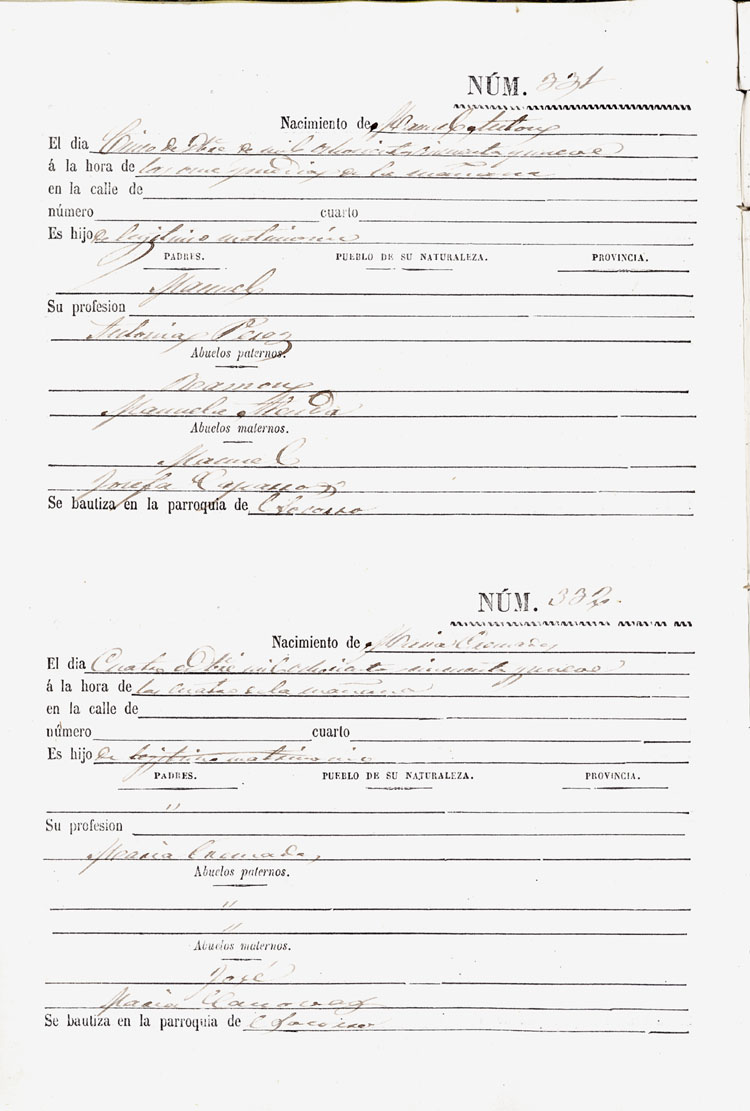 NÚM. 331
Nacimiento de Manuel
El dia Cinco de Dbre de mil ochocientos cincuenta y nueve
á la hora de las once y media de la mañana
en la calle de
número cuarto
Es hijo de legitimo matrimonio
PADRES. PUEBLO DE SU NATURALEZA. PROVINCIA.
Manuel
Su profesion
Antonia Perez
Abuelos paternos.
Ramon
Manuela
Abuelos maternos.
Manuel
Josefa
Se bautiza en la parroquia de el Socorro
NÚM. 332
Nacimiento de Maria
El dia Cuatro de Dbre mil ochocientos cincuenta y nueve
á la hora de las cuatro de la mañana
en la calle de
número cuarto
Es hijo de legitimo matrimonio
PADRES. PUEBLO DE SU NATURALEZA. PROVINCIA.
"
Su profesion
Maria
Abuelos paternos.
"
"
Abuelos maternos.
José
Maria
Se bautiza en la parroquia de el Socorro